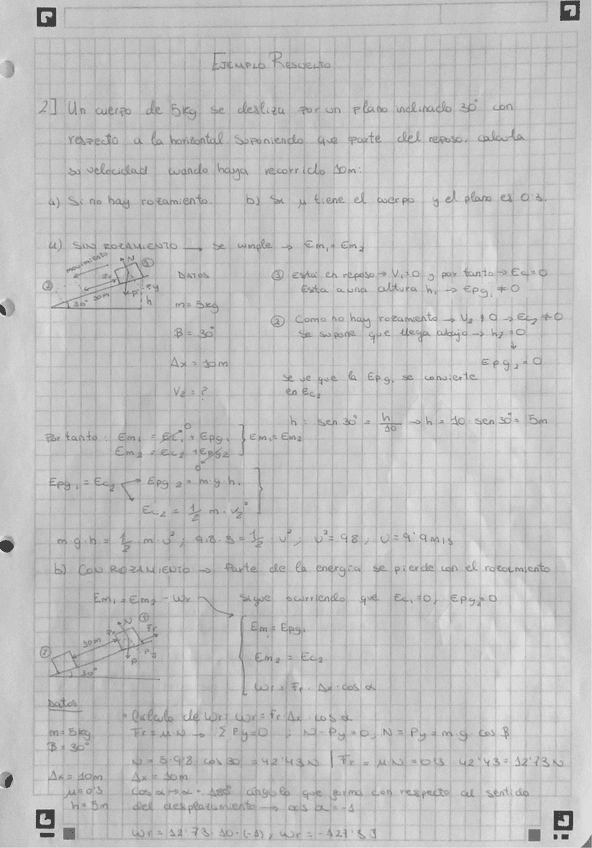 EJEMPLO RESUELTO
2] Un cuerpo de 5kg se desliza por un plano inclinado 30° con
respecto a la horizontal suponiendo que parte del reposo. calcula
su velocidad cuando haya recorrido 10m:
a) Si no hay rozamiento. b) Si μ tiene el cuerpo y el plano es 0'3.
a) SIN ROZAMIENTO → se cumple → Em₁ = Em₂
movimiento
N
①
②
10m
30°
h
DATOS
m = 5kg
B = 30°
Δx = 10m
V₂ = ?
① Esta en reposo → V₁=0 y por tanto → Ec₁=0
Esta a una altura h₁ → Epg₁ ≠ 0
② Como no hay rozamiento → V₂ ≠ 0 → Ec₂ ≠ 0
Se supone que llega abajo → h₂=0
↓
Epg₂=0
se ve que la Epg₁ se convierte
en Ec₂
h: sen 30° = h/10 → h = 10 · sen 30° = 5m
Por tanto: Em₁ = Ec₁ + Epg₁ } Em₁=Em₂
Em₂ = Ec₂ + Epg₂
Epg₁ = Ec₂ Epg₂ = m·g·h.
Ec₂ = 1/2 m · v₂²
m g·h = 1/2 m·v²; 9.8·5 = 1/2 · v², v²=98, v=9'9m/s
b) CON ROZAMIENTO → Parte de la energia se pierde con el rozamiento
Em₁ = Em₂ - Wr Sigue ocurriendo que Ec₁=0, Epg₂=0
Em₁ = Epg₁
Em₂ = Ec₂
Wr = Fr · Δx · cos α
①
N
Fr
②
10m
P
30°
Datos
m=5kg
B=30°
Δx = 10m
μ=0'3
h=5m
· Calculo de Wr: Wr = Fr·Δx · cos α
Fr = μ N → ΣPy=0 ; N-Py=0, N=Py=m·g·cos β
N = 5·9'8 · cos 30 = 42'43N | Fr = μ·N = 0'3 · 42'43 = 12'73N
Δx = 10m
cos α → α = 180° angulo que forma con respecto al sentido
del desplazamiento → cos α = -1
Wr = 12'73·10·(-1), Wr = -127'3J